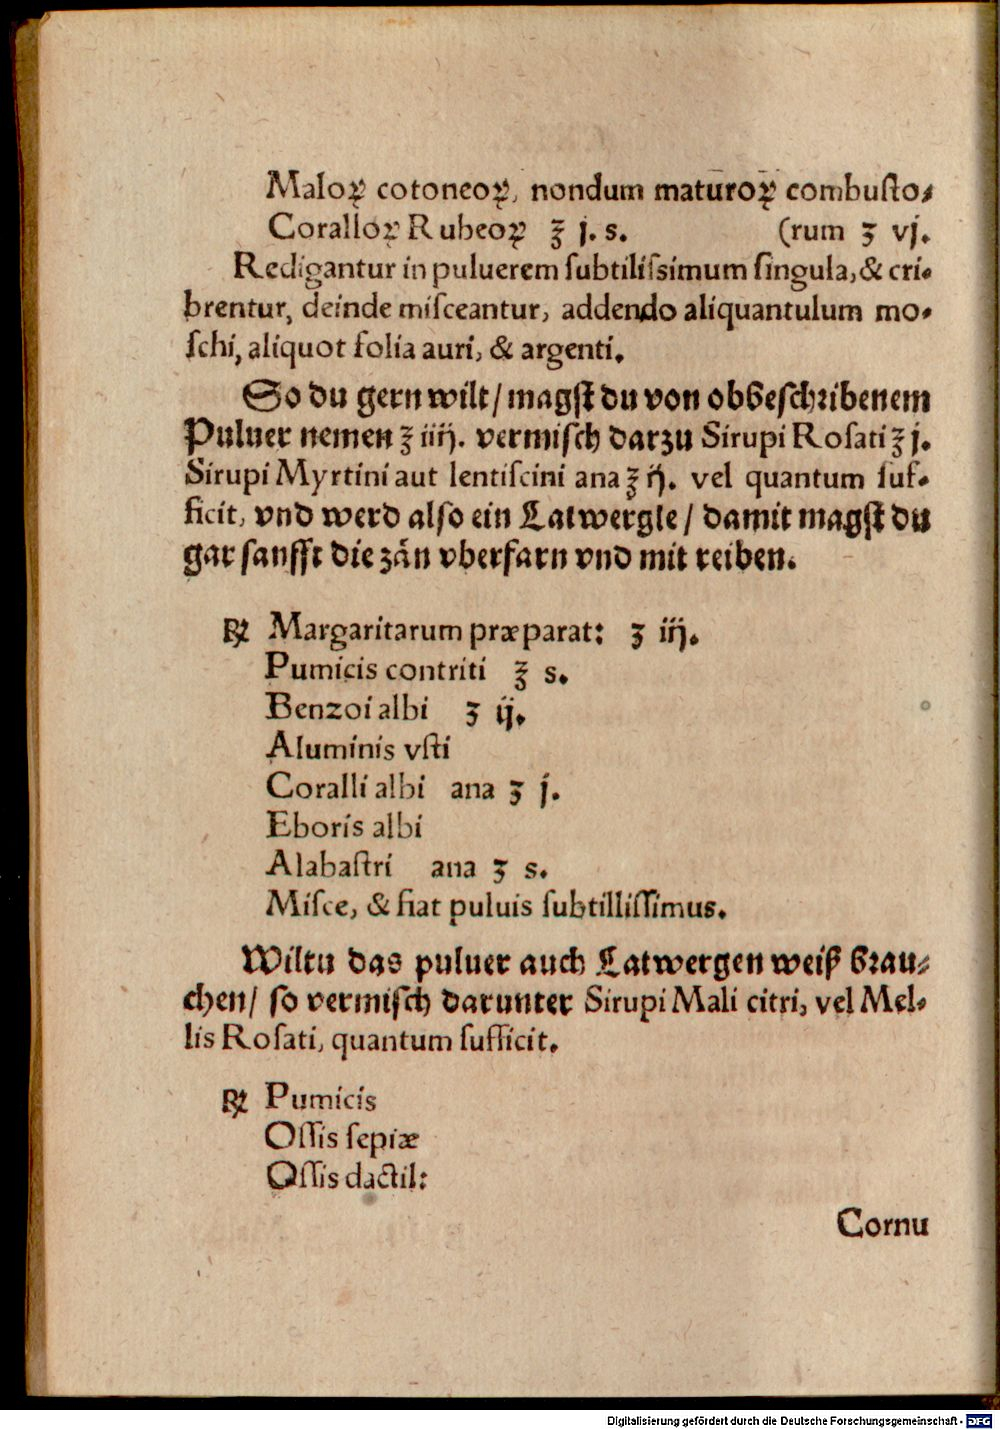 Maloꝝ cotoneoꝝ, nondum maturoꝝ combuſto⸗
Coralloꝝ Rubeoꝝ ℥ j. s. (rum ʒ vj.
Redigantur in puluerem ſubtiliſsimum ſingula, & cri⸗
brentur, deinde miſceantur, addendo aliquantulum mo⸗
ſchi, aliquot folia auri, & argenti.
So du gern wilt / magſt du von obbeſchꝛibenem
Puluer nemen ℥ iiij. vermiſch darzu Sirupi Roſati ℥ j.
Sirupi Myrtini aut lentiſcini ana ℥ ij. vel quantum ſuf⸗
ficit, vnd werd alſo ein Latwergle / damit magſt du
gar ſanfft die zaͤn vberfarn vnd mit reiben.
℞ Margaritarum præparat: ʒ iij.
Pumicis contriti ℥ s.
Benzoi albi ʒ ij.
Aluminis vſti
Coralli albi ana ʒ j.
Eboris albi
Alabaſtri ana ʒ s.
Miſce, & fiat puluis ſubtilliſſimus.
Wiltu das puluer auch Latwergen weiß bꝛau⸗
chen / ſo vermiſch darunter Sirupi Mali citri, vel Mel⸗
lis Roſati, quantum ſufficit.
℞ Pumicis
Oſſis ſepiæ
Oſſis dactil:
Cornu
Digitalisierung gefördert durch die Deutsche Forschungsgemeinschaft - DFG